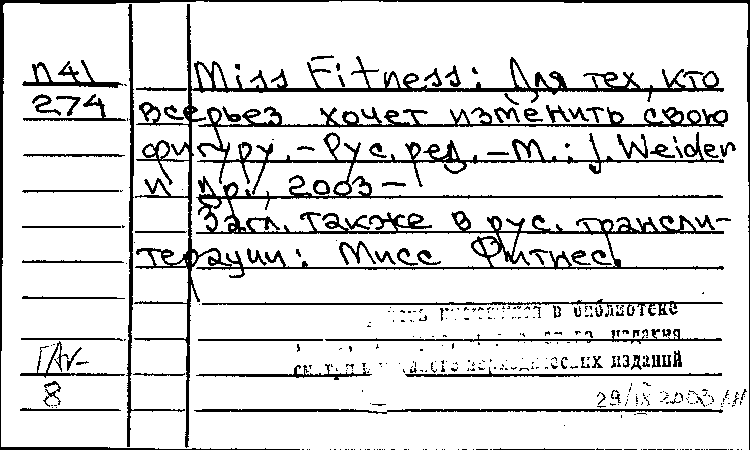 П41
274
Miss Fitness: Для тех, кто
всерьез хочет изменить свою
фигуру. – Рус. ред. – М.: J. Weider
и др., 2003 –
Загл. также в рус. трансли-
терации: Мисс Фитнес.
в библиотеке
издания
периодических изданий
8
29/IX 2003